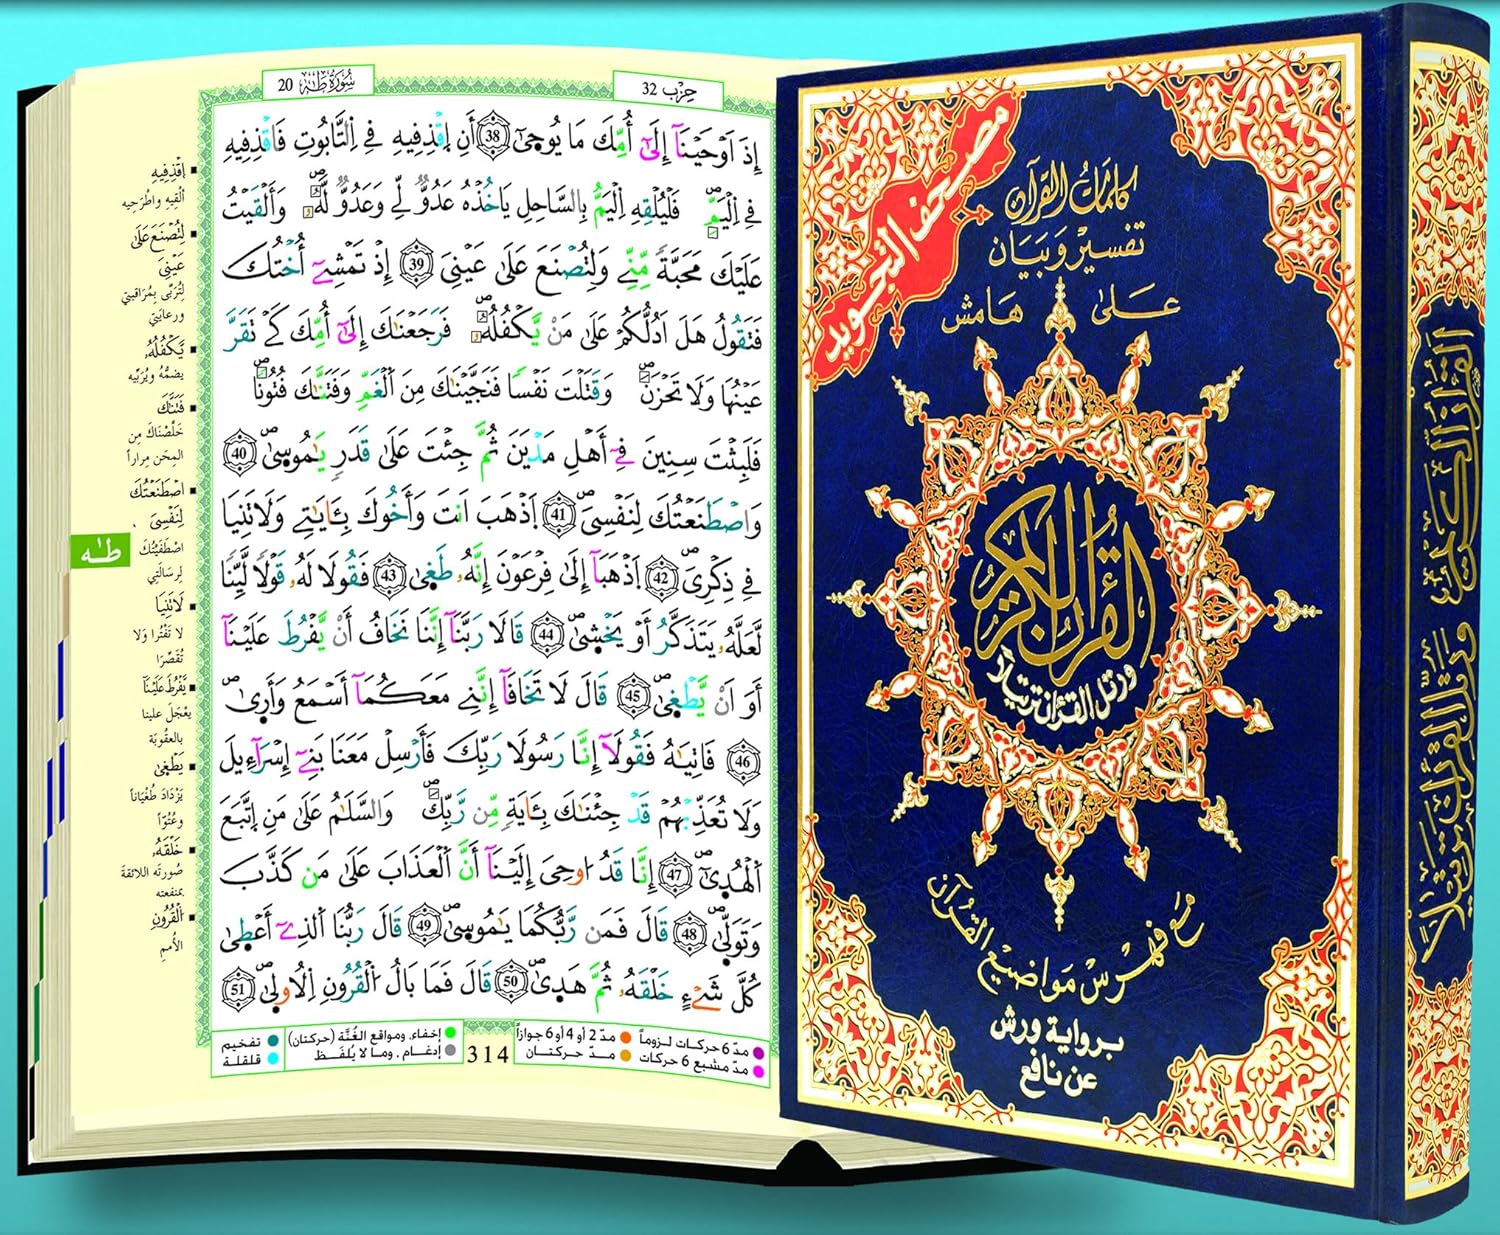 سُورَةُ طَهَ 20
حِزْب 32
إِذَ اَوْحَيْنَآ إِلَىٰٓ أُمِّكَ مَا يُوحَىٰٓ 38 أَنِ اِقْذِفِيهِ فِي اِلتَّابُوتِ فَاقْذِفِيهِ
فِي اِلْيَمِّ فَلْيُلْقِهِ اِلْيَمُّ بِالسَّاحِلِ يَاخُذْهُ عَدُوٌّ لِّي وَعَدُوٌّ لَّهُۥ وَأَلْقَيْتُ
عَلَيْكَ مَحَبَّةً مِّنِّے وَلِتُصْنَعَ عَلَىٰ عَيْنِيَ 39 إِذْ تَمْشِےٓ أُخْتُكَ
فَتَقُولُ هَلَ اَدُلُّكُمْ عَلَىٰ مَنْ يَّكْفُلُهُۥ فَرَجَعْنَٰكَ إِلَىٰٓ أُمِّكَ كَےْ تَقَرَّ
عَيْنُهَا وَلَا تَحْزَنَ وَقَتَلْتَ نَفْسًا فَنَجَّيْنَٰكَ مِنَ اَلْغَمِّ وَفَتَنَّٰكَ فُتُونًا
فَلَبِثْتَ سِنِينَ فِےٓ أَهْلِ مَدْيَنَ ثُمَّ جِئْتَ عَلَىٰ قَدَرٍ يَٰمُوسَىٰ 40
وَاصْطَنَعْتُكَ لِنَفْسِيَ 41 اَذْهَبَ اَنتَ وَأَخُوكَ بِـَٔايَٰتِے وَلَا تَنِيَا
فِي ذِكْرِيَ 42 اَذْهَبَآ إِلَىٰ فِرْعَوْنَ إِنَّهُۥ طَغَىٰ 43 فَقُولَا لَهُۥ قَوْلًا لَّيِّنًا
لَّعَلَّهُۥ يَتَذَكَّرُ أَوْ يَخْشَىٰ 44 قَالَا رَبَّنَآ إِنَّنَا نَخَافُ أَنْ يَّفْرُطَ عَلَيْنَآ
أَوَ اَنْ يَّطْغَىٰ 45 قَالَ لَا تَخَافَآ إِنَّنِے مَعَكُمَآ أَسْمَعُ وَأَرَىٰ
46 فَاتِيَٰهُ فَقُولَآ إِنَّا رَسُولَا رَبِّكَ فَأَرْسِلْ مَعَنَا بَنِےٓ إِسْرَآءِيلَ
وَلَا تُعَذِّبْهُمْ قَدْ جِئْنَٰكَ بِـَٔايَةٍ مِّن رَّبِّكَ وَالسَّلَٰمُ عَلَىٰ مَنِ اِتَّبَعَ
اَلْهُدَىٰٓ 47 إِنَّا قَدُ اُوحِيَ إِلَيْنَآ أَنَّ اَلْعَذَابَ عَلَىٰ مَن كَذَّبَ
وَتَوَلَّىٰ 48 قَالَ فَمَن رَّبُّكُمَا يَٰمُوسَىٰ 49 قَالَ رَبُّنَا اَلذِےٓ أَعْطَىٰ
كُلَّ شَےْءٍ خَلْقَهُۥ ثُمَّ هَدَىٰ 50 قَالَ فَمَا بَالُ اُلْقُرُونِ اِلُاولَىٰ 51
اِقْذِفِيهِ
أَلْقِيهِ واطْرَحِيه
لِتُصْنَعَ عَلَىٰ
عَيْنِيَ
لِتُرَبَّى بِمُرَاقَبتِي
ورعايَتِي
يَّكْفُلُهُۥ
يضمُّهُ ويُرَبِّيه
فَتَنَّٰكَ
خَلَّصْنَاكَ مِن
المِحَن مِراراً
اصْطَنَعْتُكَ
لِنَفْسِيَ
اصْطَفَيْتُكَ
لِرسَالَتِي
لَا تَنِيَا
لا تَفْتُرا وَلا
تُقَصِّرَا
يَّفْرُطَ عَلَيْنَآ
يعْجَلَ علينا
بالعقُوبَة
يَّطْغَىٰ
يَزْدَادَ طُغْيَاناً
وعُتُوّاً
خَلْقَهُۥ
صُورتَه اللائقةَ
بمنفعته
اُلْقُرُونِ
الأُممِ
طَهَ
مدّ 6 حركات لـزومـاً
مدّ مشبع 6 حركات
مدّ 2 أو 4 أو 6 جوازاً
مــدّ حـركـتـان
314
إخفاء، ومواقع الغُنَّة (حركتان)
إدغـام ، ومـا لا يُـلـفـظ
تفخيم
قلقلة
مصحف التجويد
كلمات القرآن
تفسير وبيان
على هامش
القرآن الكريم
ورتل القرآن ترتيلا
مع فهرس مواضيع القرآن
برواية ورش
عن نافع
القرآن الكريم ورتل القرآن ترتيلا